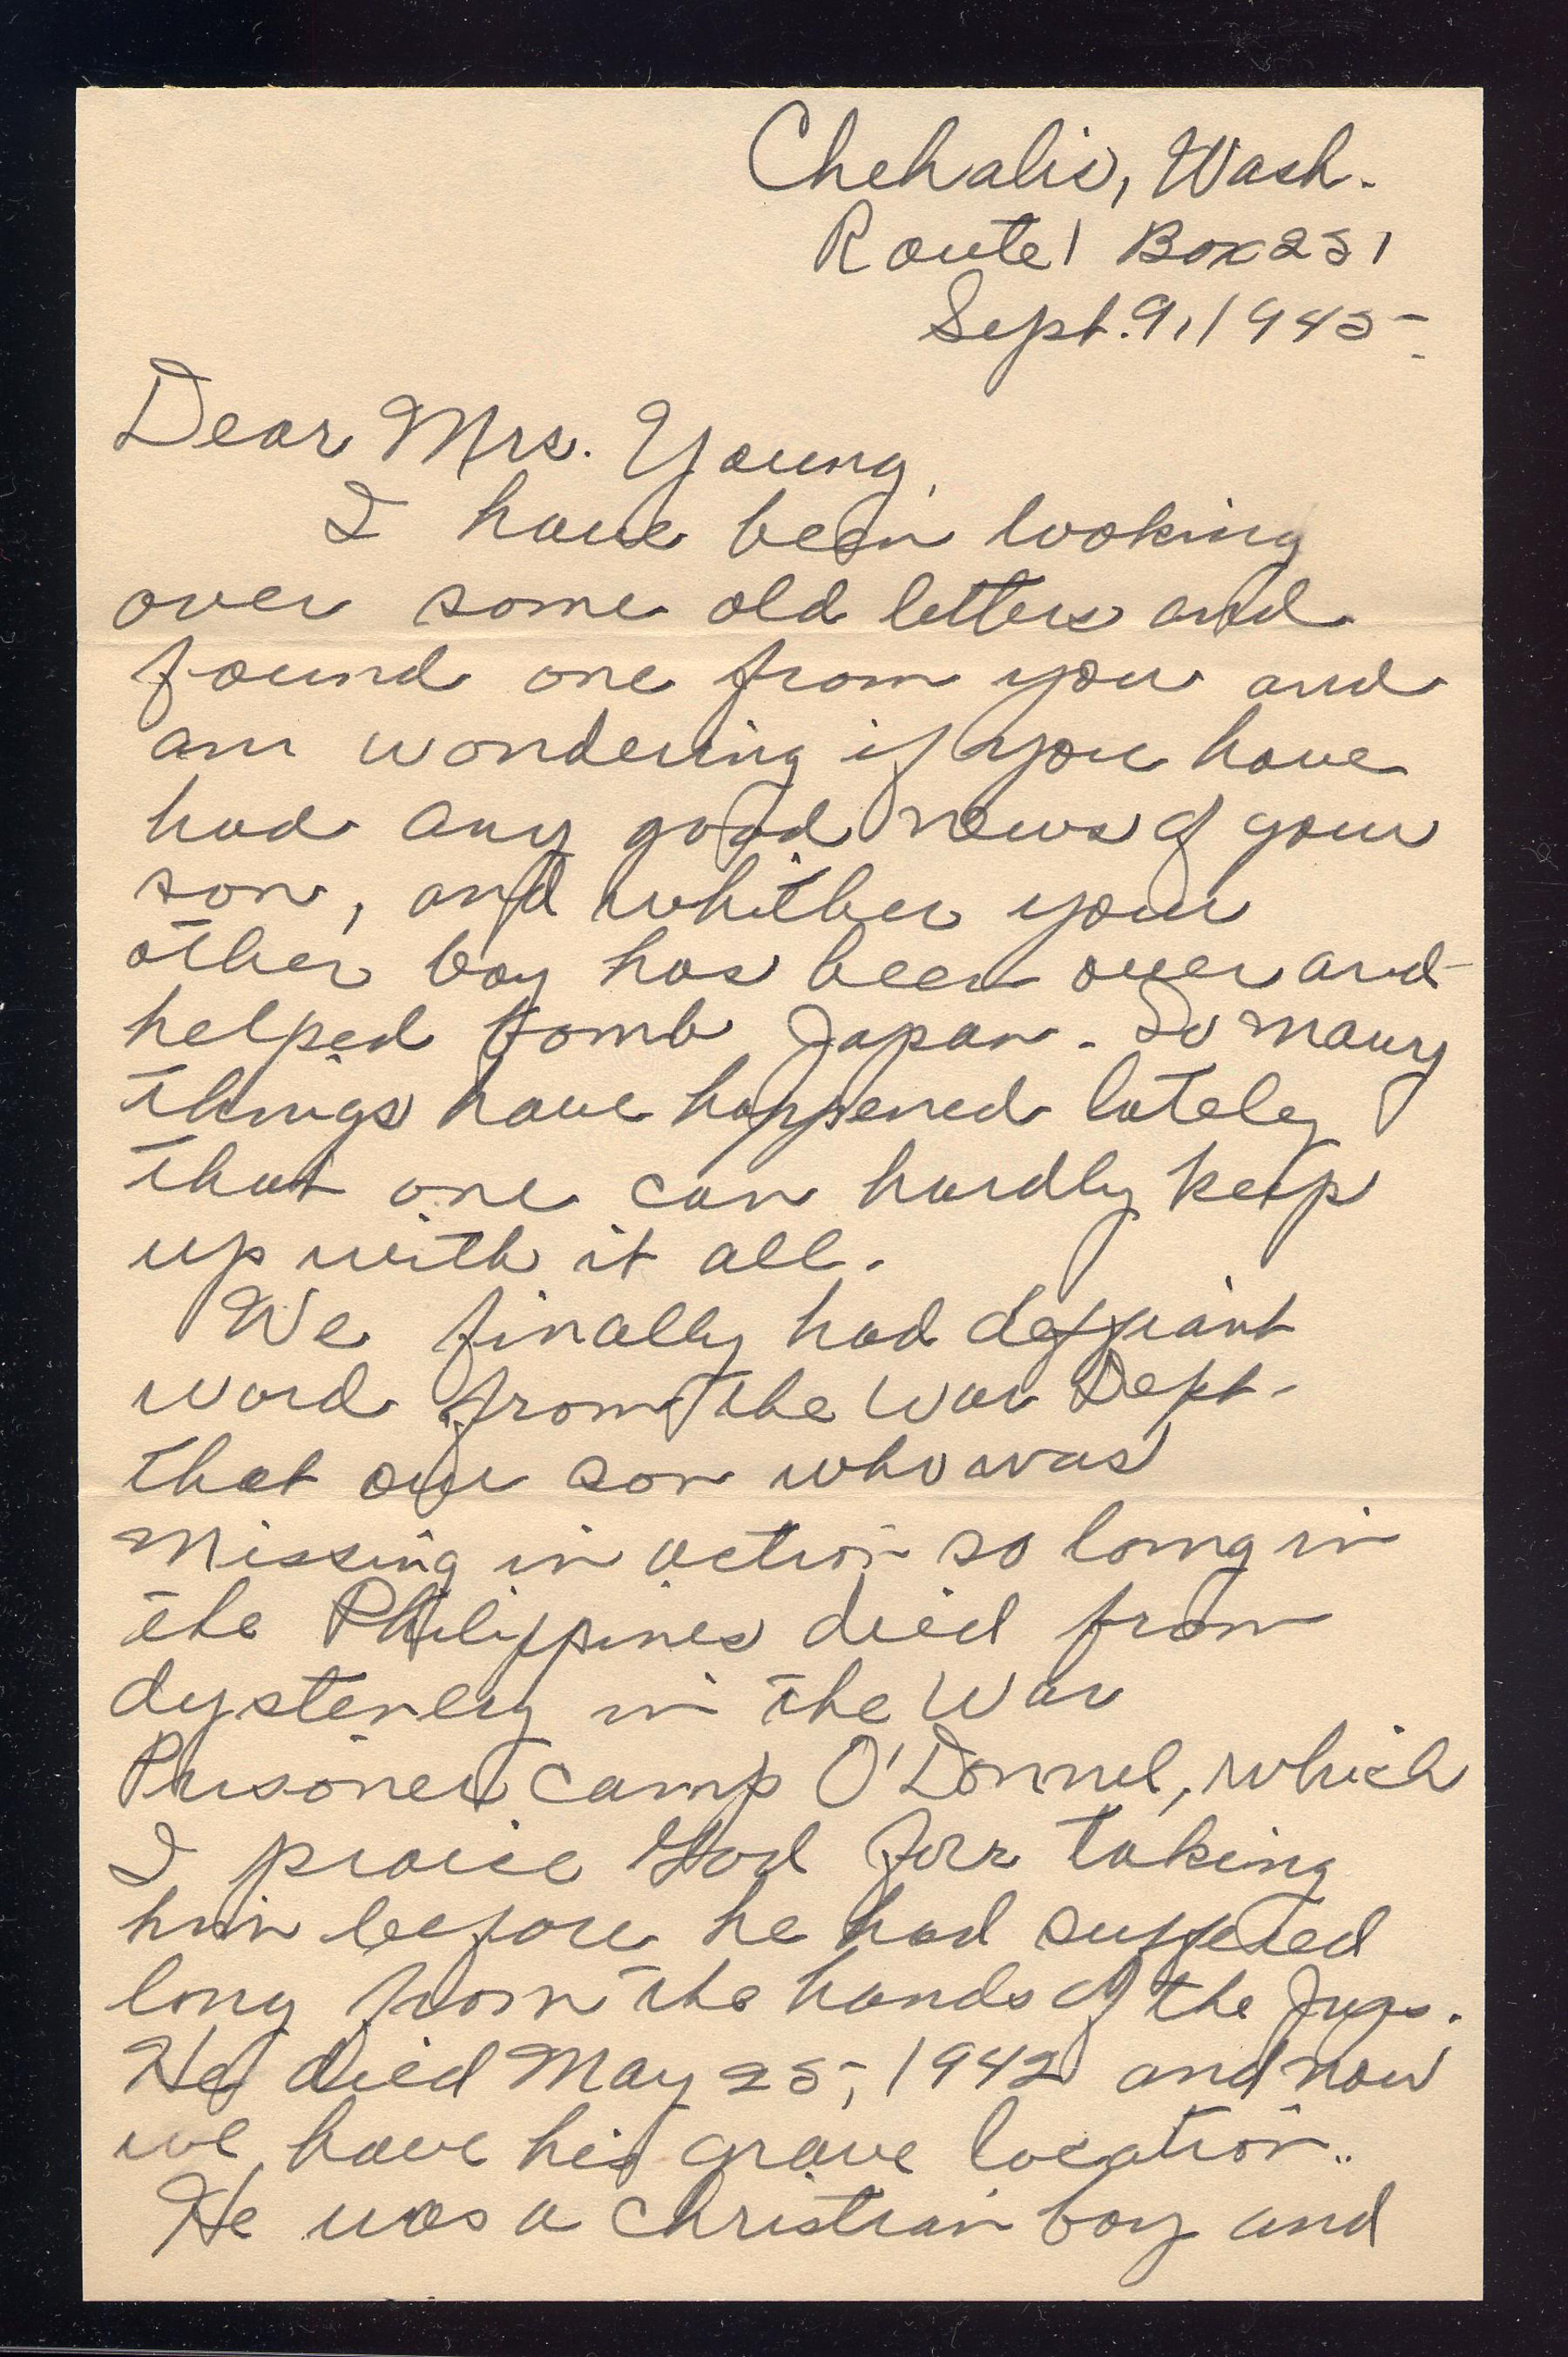 Chehalis, Wash.
Route 1 Box 251
Sept. 9, 1945
Dear Mrs. Young,
I have been looking
over some old letters and
found one from you and
am wondering if you have
had any good news of your
son, and whither your
other boy has been over and
helped bomb Japan. So many
things have happened lately
that one can hardly keep
up with it all.
We finally had
word from the War Dept.
that our son who was
missing in action so long in
the Philippines died from
dystenery in the War
Prisoner camp O'Donnel, which
I praise God for taking
him before he had suffered
long from the hands of the Japs.
He died May 25, 1942 and now
we have his grave location..
He was a Christian boy and